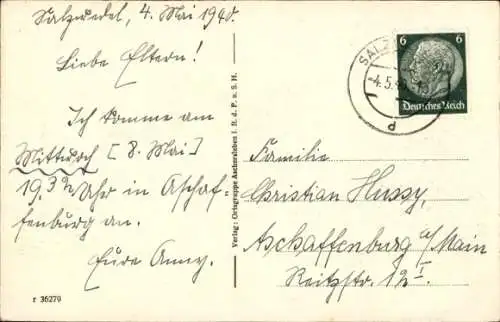 Salzwedel, 4. Mai 1940.
Liebe Eltern!
Ich komme am
Mittwoch [8. Mai]
19.32 Uhr in Aschaf-
fenburg an.
Eure Anny.
r 36279
Verlag: Ortsgruppe Aschersleben i. B. d. P. u. S. H.
SALZ
-4.5.40
d
6 6
Deutsches Reich
Familie
Christian Hussy,
Aschaffenburg a/Main
Reitzstr. 12 I.